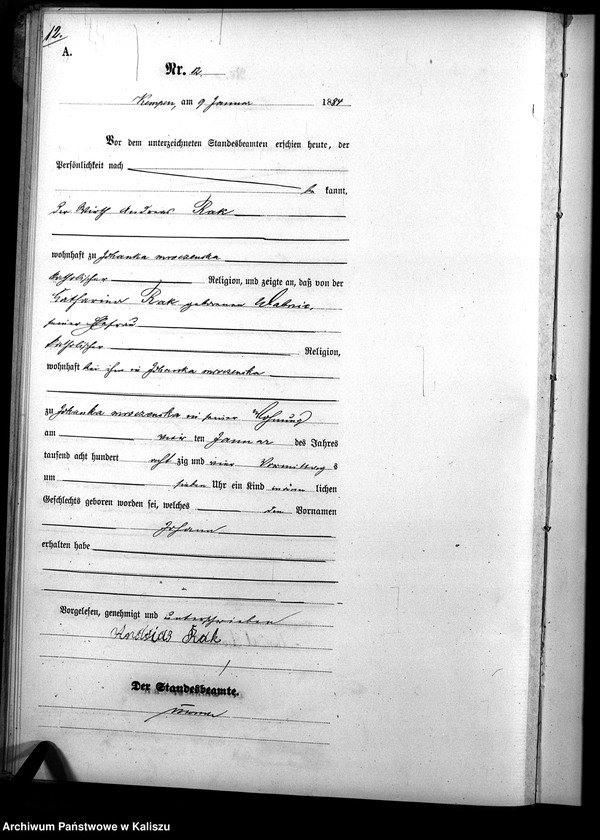 12.
A.
Nr. 12
Kempen, am 9 Januar 1884
Vor dem unterzeichneten Standesbeamten erschien heute, der
Persönlichkeit nach
be kannt,
der Wirth Andreas Rak
wohnhaft zu Ihanka mroczenska
katholischer Religion, und zeigte an, daß von der
Catharina Rak geborenen
seiner Ehefrau
katholischer Religion,
wohnhaft bei ihm in Ihanka mroczenska
zu Ihanka mroczenska in seiner Wohnung
am ten Januar des Jahres
tausend acht hundert acht zig und vier Vormittag s
um sieben Uhr ein Kind männ lichen
Geschlechts geboren worden sei, welches den Vornamen
Johann
erhalten habe
Vorgelesen, genehmigt und unterschrieben
Andreas Rak
Der Standesbeamte.
Archiwum Państwowe w Kaliszu